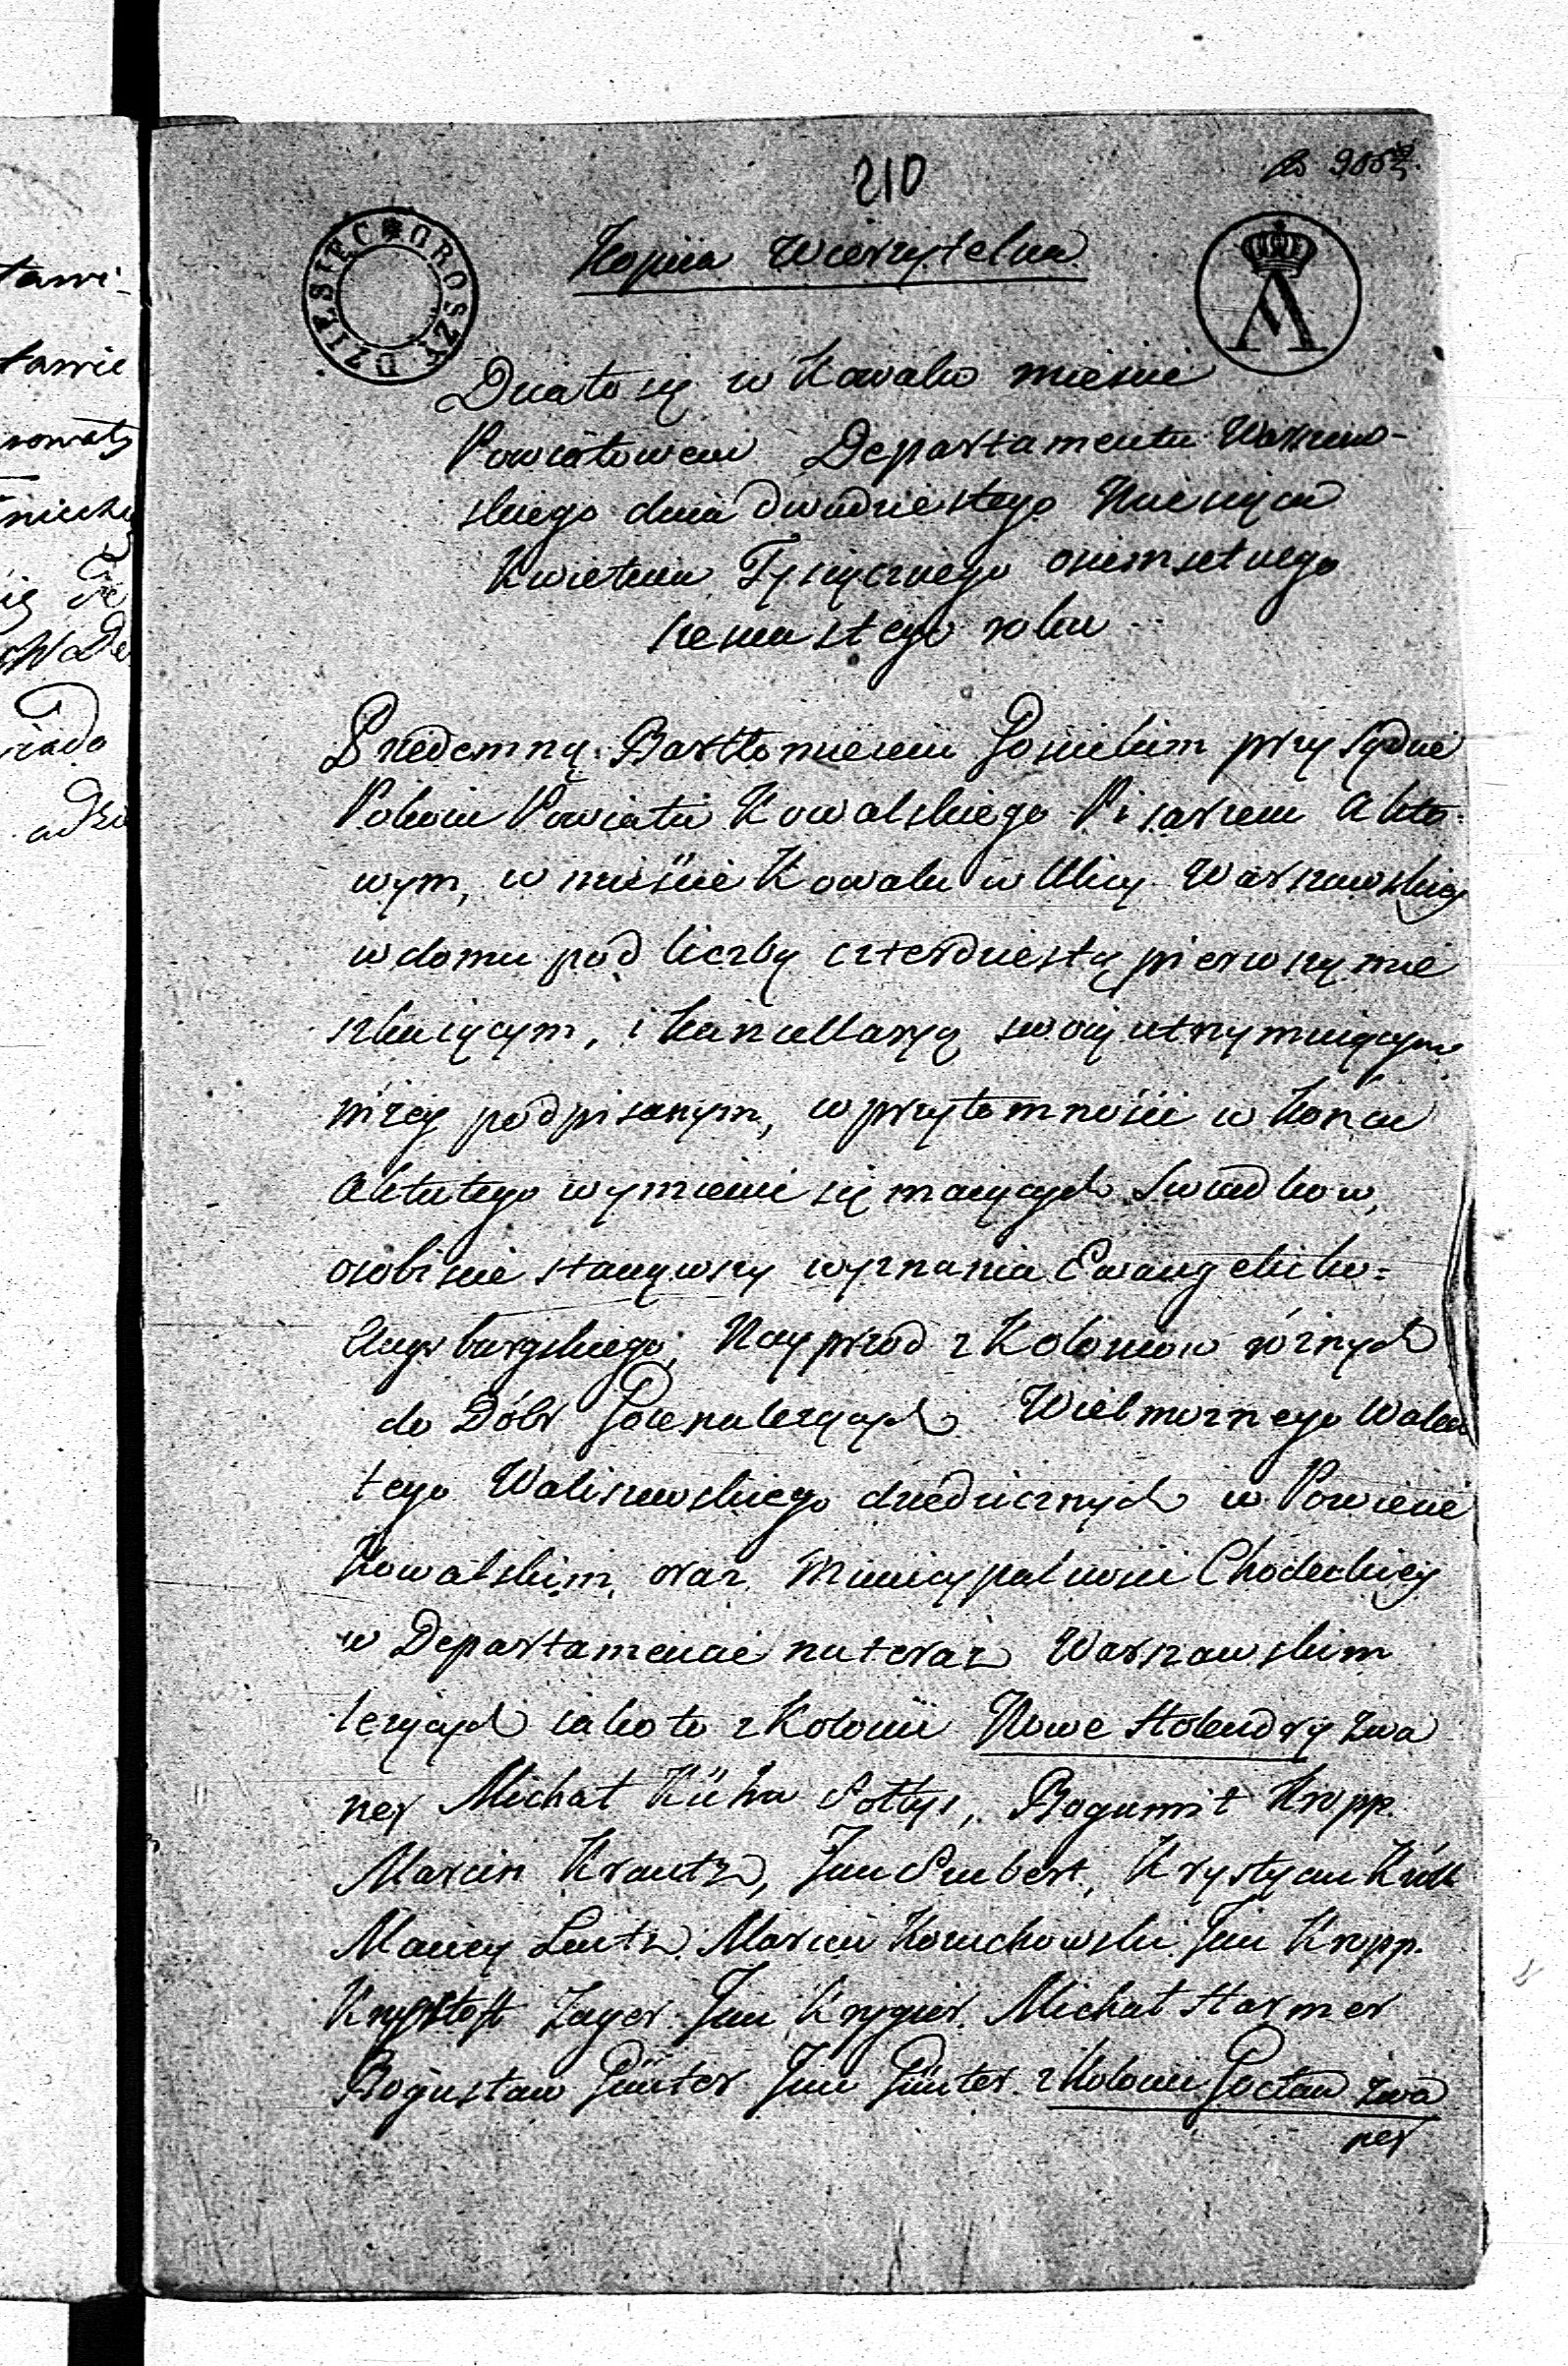 210
DZIESIĘĆ GROSZY
Kopiia Wierzytelna
Działo się w Kowalu mieście
Powiatowem Departamentu Warszaw-
skiego dnia dwudziestego Miesiąca
Kwietnia Tysiącznego osiemsetnego
szesnastego roku
Przedemną Bartłomieiem Gosickim przy Sądzie
Pokoiu Powiatu Kowalskiego Pisarzem Akto-
wym, w mieście Kowalu w Ulicy Warszawskiey
w domu pod liczbą czterdziestą pierwszą mie
szkaiącym, i kancellaryą swoią utrzymuiącym
niżey podpisanym, w przytomności w końcu
aktu tego wymienić się maiących Swiadków,
osobiście stanąwszy wyznania Ewangelicko=
Augsburgskiego, Nayprzod z Koloniow róznych
do Dóbr należących Wielmoznego Walen
tego Waliszewskiego dziedzicznych w Powiecie
Kowalskim, oraz Municypalności Chodeckiey
w Departamencie na teraz Warszawskim
lezących iako to z Kolonii Nowe Holendry zwa
ney Michał Kühn Sołtys, Bogumił Kropp.
Marcin Krautz, Jan Szubert, Krystyan
Maciey Lentz Marcin Jan Kropp.
Krysztoff Zager Jan Krygier Michał Harmer
Bogusław Günter Jan Günter z Kolonii zwa
ney